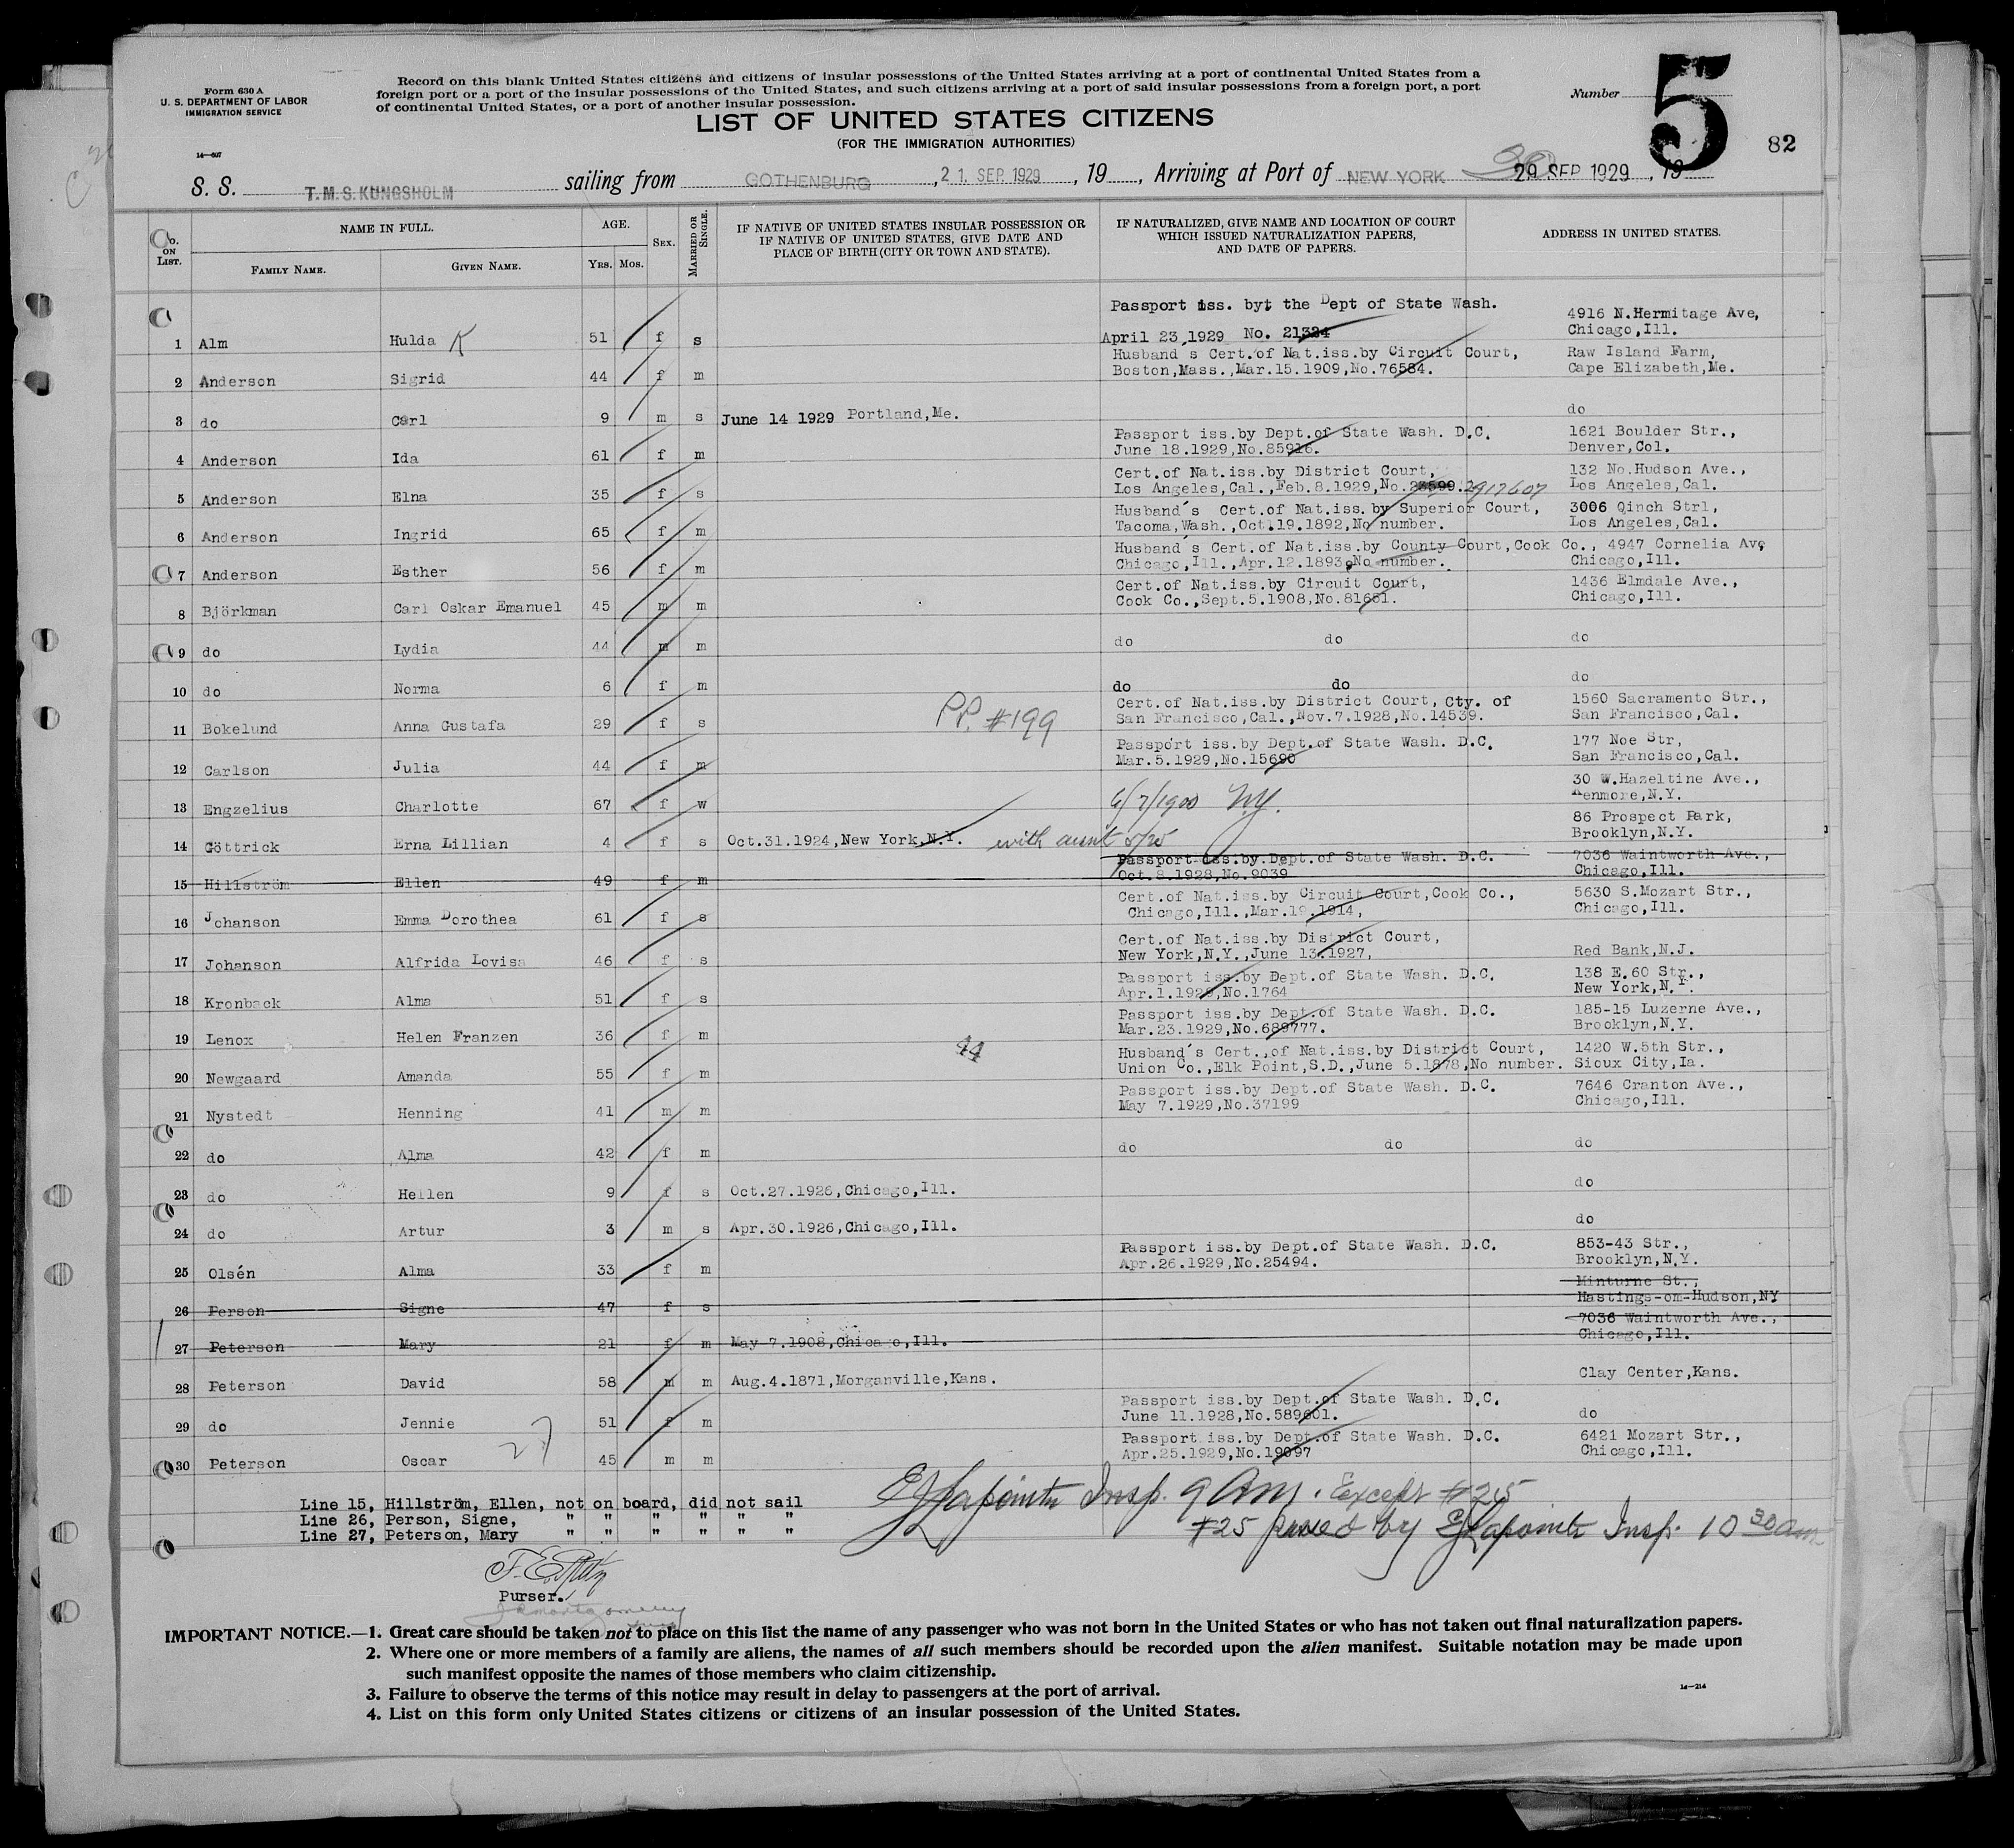 Form 630 A
U. S. DEPARTMENT OF LABOR
IMMIGRATION SERVICE
14—607
Record on this blank United States citizens and citizens of insular possessions of the United States arriving at a port of continental United States from a
foreign port or a port of the insular possessions of the United States, and such citizens arriving at a port of said insular possessions from a foreign port, a port
of continental United States, or a port of another insular possession.
Number 5
82
LIST OF UNITED STATES CITIZENS
(FOR THE IMMIGRATION AUTHORITIES)
S. S. T.M.S.KUNGSHOLM sailing from GOTHENBURG, 21. SEP. 1929, 19, Arriving at Port of NEW YORK 29 SEP 1929, 19
No. ON LIST. NAME IN FULL. AGE. SEX. MARRIED OR SINGLE. IF NATIVE OF UNITED STATES INSULAR POSSESSION OR IF NATIVE OF UNITED STATES, GIVE DATE AND PLACE OF BIRTH (CITY OR TOWN AND STATE). IF NATURALIZED, GIVE NAME AND LOCATION OF COURT WHICH ISSUED NATURALIZATION PAPERS, AND DATE OF PAPERS. ADDRESS IN UNITED STATES.
FAMILY NAME. GIVEN NAME. YRS. MOS.
Passport iss. byt the Dept of State Wash. 4916 N.Hermitage Ave,
1 Alm Hulda K 51 f s April 23,1929 No. 21324 Chicago,Ill.
Husband's Cert.of Nat.iss.by Circuit Court, Raw Island Farm,
2 Anderson Sigrid 44 f m Boston,Mass.,Mar.15.1909,No.76584. Cape Elizabeth,Me.
3 do Carl 9 m s June 14 1929 Portland,Me. do
Passport iss.by Dept.of State Wash. D.C. 1621 Boulder Str.,
4 Anderson Ida 61 f m June 18.1929,No.85916. Denver,Col.
Cert.of Nat.iss.by District Court, 132 No.Hudson Ave.,
5 Anderson Elna 35 f s Los Angeles,Cal.,Feb.8.1929,No.23599. 2917607 Los Angeles,Cal.
Husband's Cert.of Nat.iss.by Superior Court, 3006 Qinch Strl,
6 Anderson Ingrid 65 f m Tacoma,Wash.,Oct.19.1892,No number. Los Angeles,Cal.
Husband's Cert.of Nat.iss.by County Court,Cook Co., 4947 Cornelia Ave
7 Anderson Esther 56 f m Chicago,Ill.,Apr.12.1893,No number. Chicago,Ill.
Cert.of Nat.iss.by Circuit Court, 1436 Elmdale Ave.,
8 Björkman Carl Oskar Emanuel 45 m m Cook Co.,Sept.5.1908,No.81651. Chicago,Ill.
9 do Lydia 44 m m do do do
10 do Norma 6 f m do do do
Cert.of Nat.iss.by District Court, Cty. of 1560 Sacramento Str.,
11 Bokelund Anna Gustafa 29 f s P.P. #199 San Francisco,Cal.,Nov.7.1928,No.14539. San Francisco,Cal.
Passport iss.by Dept.of State Wash. D.C. 177 Noe Str,
12 Carlson Julia 44 f m Mar.5.1929,No.15690 San Francisco,Cal.
30 W.Hazeltine Ave.,
13 Engzelius Charlotte 67 f w 6/7/1900 N.Y. Kenmore,N.Y.
86 Prospect Park,
14 Göttrick Erna Lillian 4 f s Oct.31.1924,New York,N.Y. with aunt 5/25 Brooklyn,N.Y.
Passport iss.by Dept.of State Wash. D.C. 7036 Waintworth Ave.,
15 Hillström Ellen 49 f m Oct.8.1928,No.9039 Chicago,Ill.
Cert.of Nat.iss.by Circuit Court,Cook Co., 5630 S.Mozart Str.,
16 Johanson Emma Dorothea 61 f s Chicago,Ill.,Mar.19.1914, Chicago,Ill.
Cert.of Nat.iss.by District Court,
17 Johanson Alfrida Lovisa 46 f s New York,N.Y.,June 13.1927, Red Bank,N.J.
Passport iss.by Dept.of State Wash. D.C. 138 E.60 Str.,
18 Kronback Alma 51 f s Apr.1.1929,No.1764 New York,N.Y.
Passport iss.by Dept.of State Wash. D.C. 185-15 Luzerne Ave.,
19 Lenox Helen Franzen 36 f m Mar.23.1929,No.689777. Brooklyn,N.Y.
44 Husband's Cert.,of Nat.iss.by District Court, 1420 W.5th Str.,
20 Newgaard Amanda 55 f m Union Co.,Elk Point,S.D.,June 5.1878,No number. Sioux City,Ia.
Passport iss.by Dept.of State Wash. D.C. 7646 Cranton Ave.,
21 Nystedt Henning 41 m m May 7.1929,No.37199 Chicago,Ill.
22 do Alma 42 f m do do do
23 do Hellen 9 f s Oct.27.1926,Chicago,Ill. do
24 do Artur 3 m s Apr.30.1926,Chicago,Ill. do
Passport iss.by Dept.of State Wash. D.C. 853-43 Str.,
25 Olsén Alma 33 f m Apr.26.1929,No.25494. Brooklyn,N.Y.
Minturne St.,
26 Person Signe 47 f s Hastings-om-Hudson,NY
7036 Waintworth Ave.,
27 Peterson Mary 21 f m May 7.1908,Chicago,Ill. Chicago,Ill.
28 Peterson David 58 m m Aug.4.1871,Morganville,Kans. Clay Center,Kans.
Passport iss.by Dept.of State Wash. D.C.
29 do Jennie 51 f m June 11.1928,No.589601. do
Passport iss.by Dept.of State Wash. D.C. 6421 Mozart Str.,
30 Peterson Oscar 45 m m Apr.25.1929,No.19097 Chicago,Ill.
27
Line 15, Hillström, Ellen, not on board, did not sail
Line 26, Person, Signe, " " " " " "
Line 27, Peterson, Mary " " " " " "
Lapointe Insp. 9 Am. Except #25
#25 passed by Lapointe Insp. 10 30 am
Purser.
IMPORTANT NOTICE.—1. Great care should be taken not to place on this list the name of any passenger who was not born in the United States or who has not taken out final naturalization papers.
2. Where one or more members of a family are aliens, the names of all such members should be recorded upon the alien manifest. Suitable notation may be made upon
such manifest opposite the names of those members who claim citizenship.
3. Failure to observe the terms of this notice may result in delay to passengers at the port of arrival.
4. List on this form only United States citizens or citizens of an insular possession of the United States.
14—214